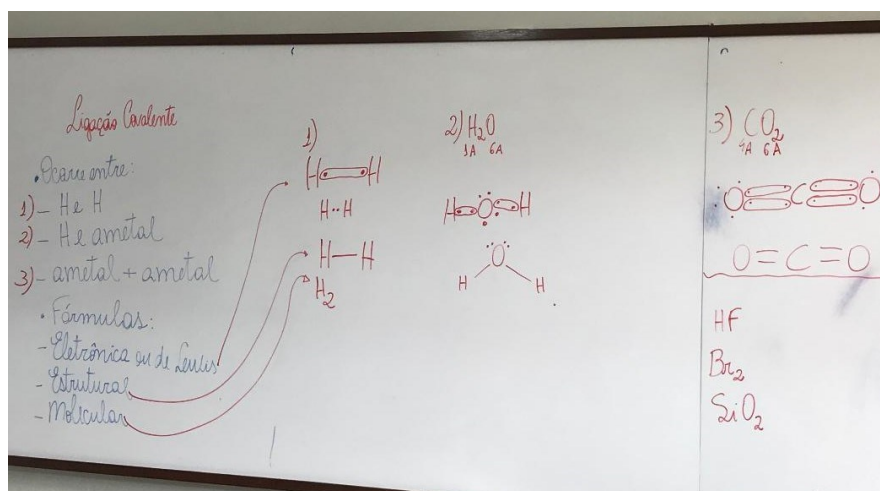 Ligação Covalente
• Ocorre entre:
1) - H e H
2) - H e ametal
3) - ametal + ametal
• Fórmulas:
- Eletrônica ou de Lewis
- Estrutural
- Molecular
1)
H H
H··H
H—H
H₂
2) H₂O
1A 6A
H O H
O
H H
3) CO₂
4A 6A
O C O
O=C=O
HF
Br₂
SiO₂